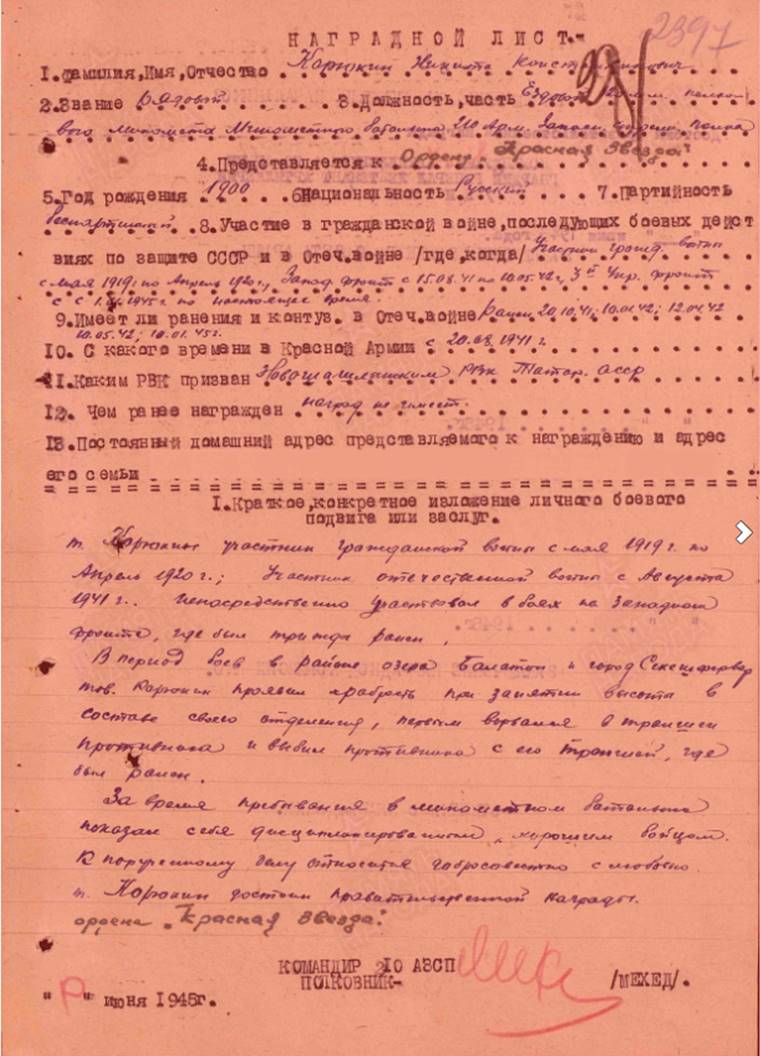 2397
НАГРАДНОЙ ЛИСТ.-
1.Фамилия,Имя,Отчество Корюкин Никита
2.Звание рядовой 3.Должность,часть Ездовой
миномета Минометного батальона 210 Арм. Запасн. полка
4.Представляется к Ордену "Красная Звезда"
5.Год рождения 1900 6Национальность Русский 7.Партийность
беспартийный 8.Участие в гражданской войне,последующих боевых дейст
виях по защите СССР и в Отеч.войне /где,когда/ Участник гражд. войны
с мая 1919г по Апрель 1920г., Запад. фронт с 15.08.41 по 10.05.42г, 3й Укр. фронт
1945г по настоящее время.
9.Имеет ли ранения и контуз. в Отеч.войне Ранен 20.10.41; 10.01.42; 12.04.42
10.05.42; 10.01.45г.
10. С какого времени в Красной Армии с 20.08.1941г.
11.Каким РВК призван РВК Татар. АССР
12. Чем ранее награжден наград не имеет.
13.Постоянный домашний адрес представляемого к награждению и адрес
его семьи
I.Краткое,конкретное изложение личного боевого
подвига или заслуг.
т. Корюкин участник Гражданской войны с мая 1919г. по
Апрель 1920г.; Участник отечественной войны с Августа
1941г. Непосредственно участвовал в боях на Западном
фронте, где был трижды ранен.
В период боев в районе озера Балатон и город Секешфервар
тов. Корюкин проявил храбрость при занятии высоты в
составе своего отделения, первым ворвался в траншеи
противника и выбил противника с его траншей, где
был ранен.
За время пребывания в минометном батальоне
показал себя дисциплинированным, хорошим бойцом.
К порученному делу относится добросовестно с любовью.
т. Корюкин достоин правительственной награды.
ордена "Красная Звезда".
КОМАНДИР 210 АЗСП
ПОЛКОВНИК- /МЕХЕД/.
" " июня 1945г.